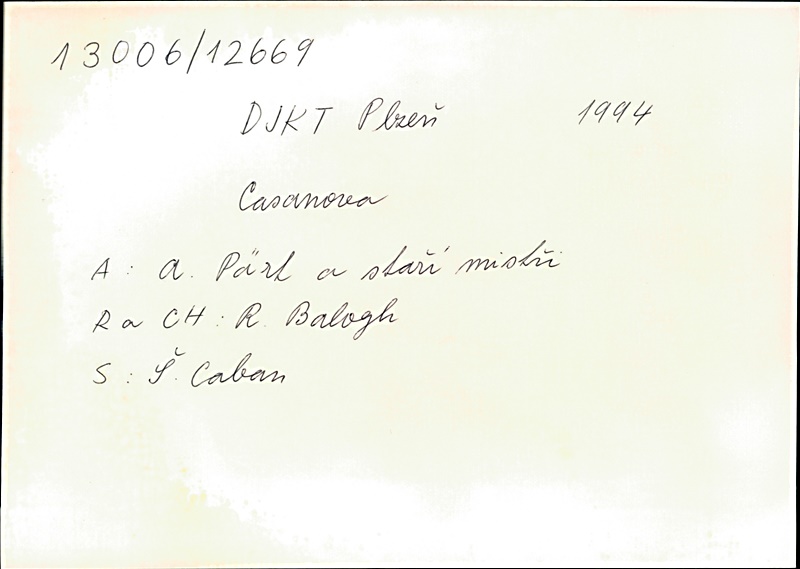 13006/12669
DJKT Plzeň 1994
Casanova
A: A. Pärt a staří mistři
R a CH: R. Balogh
S: Š. Caban